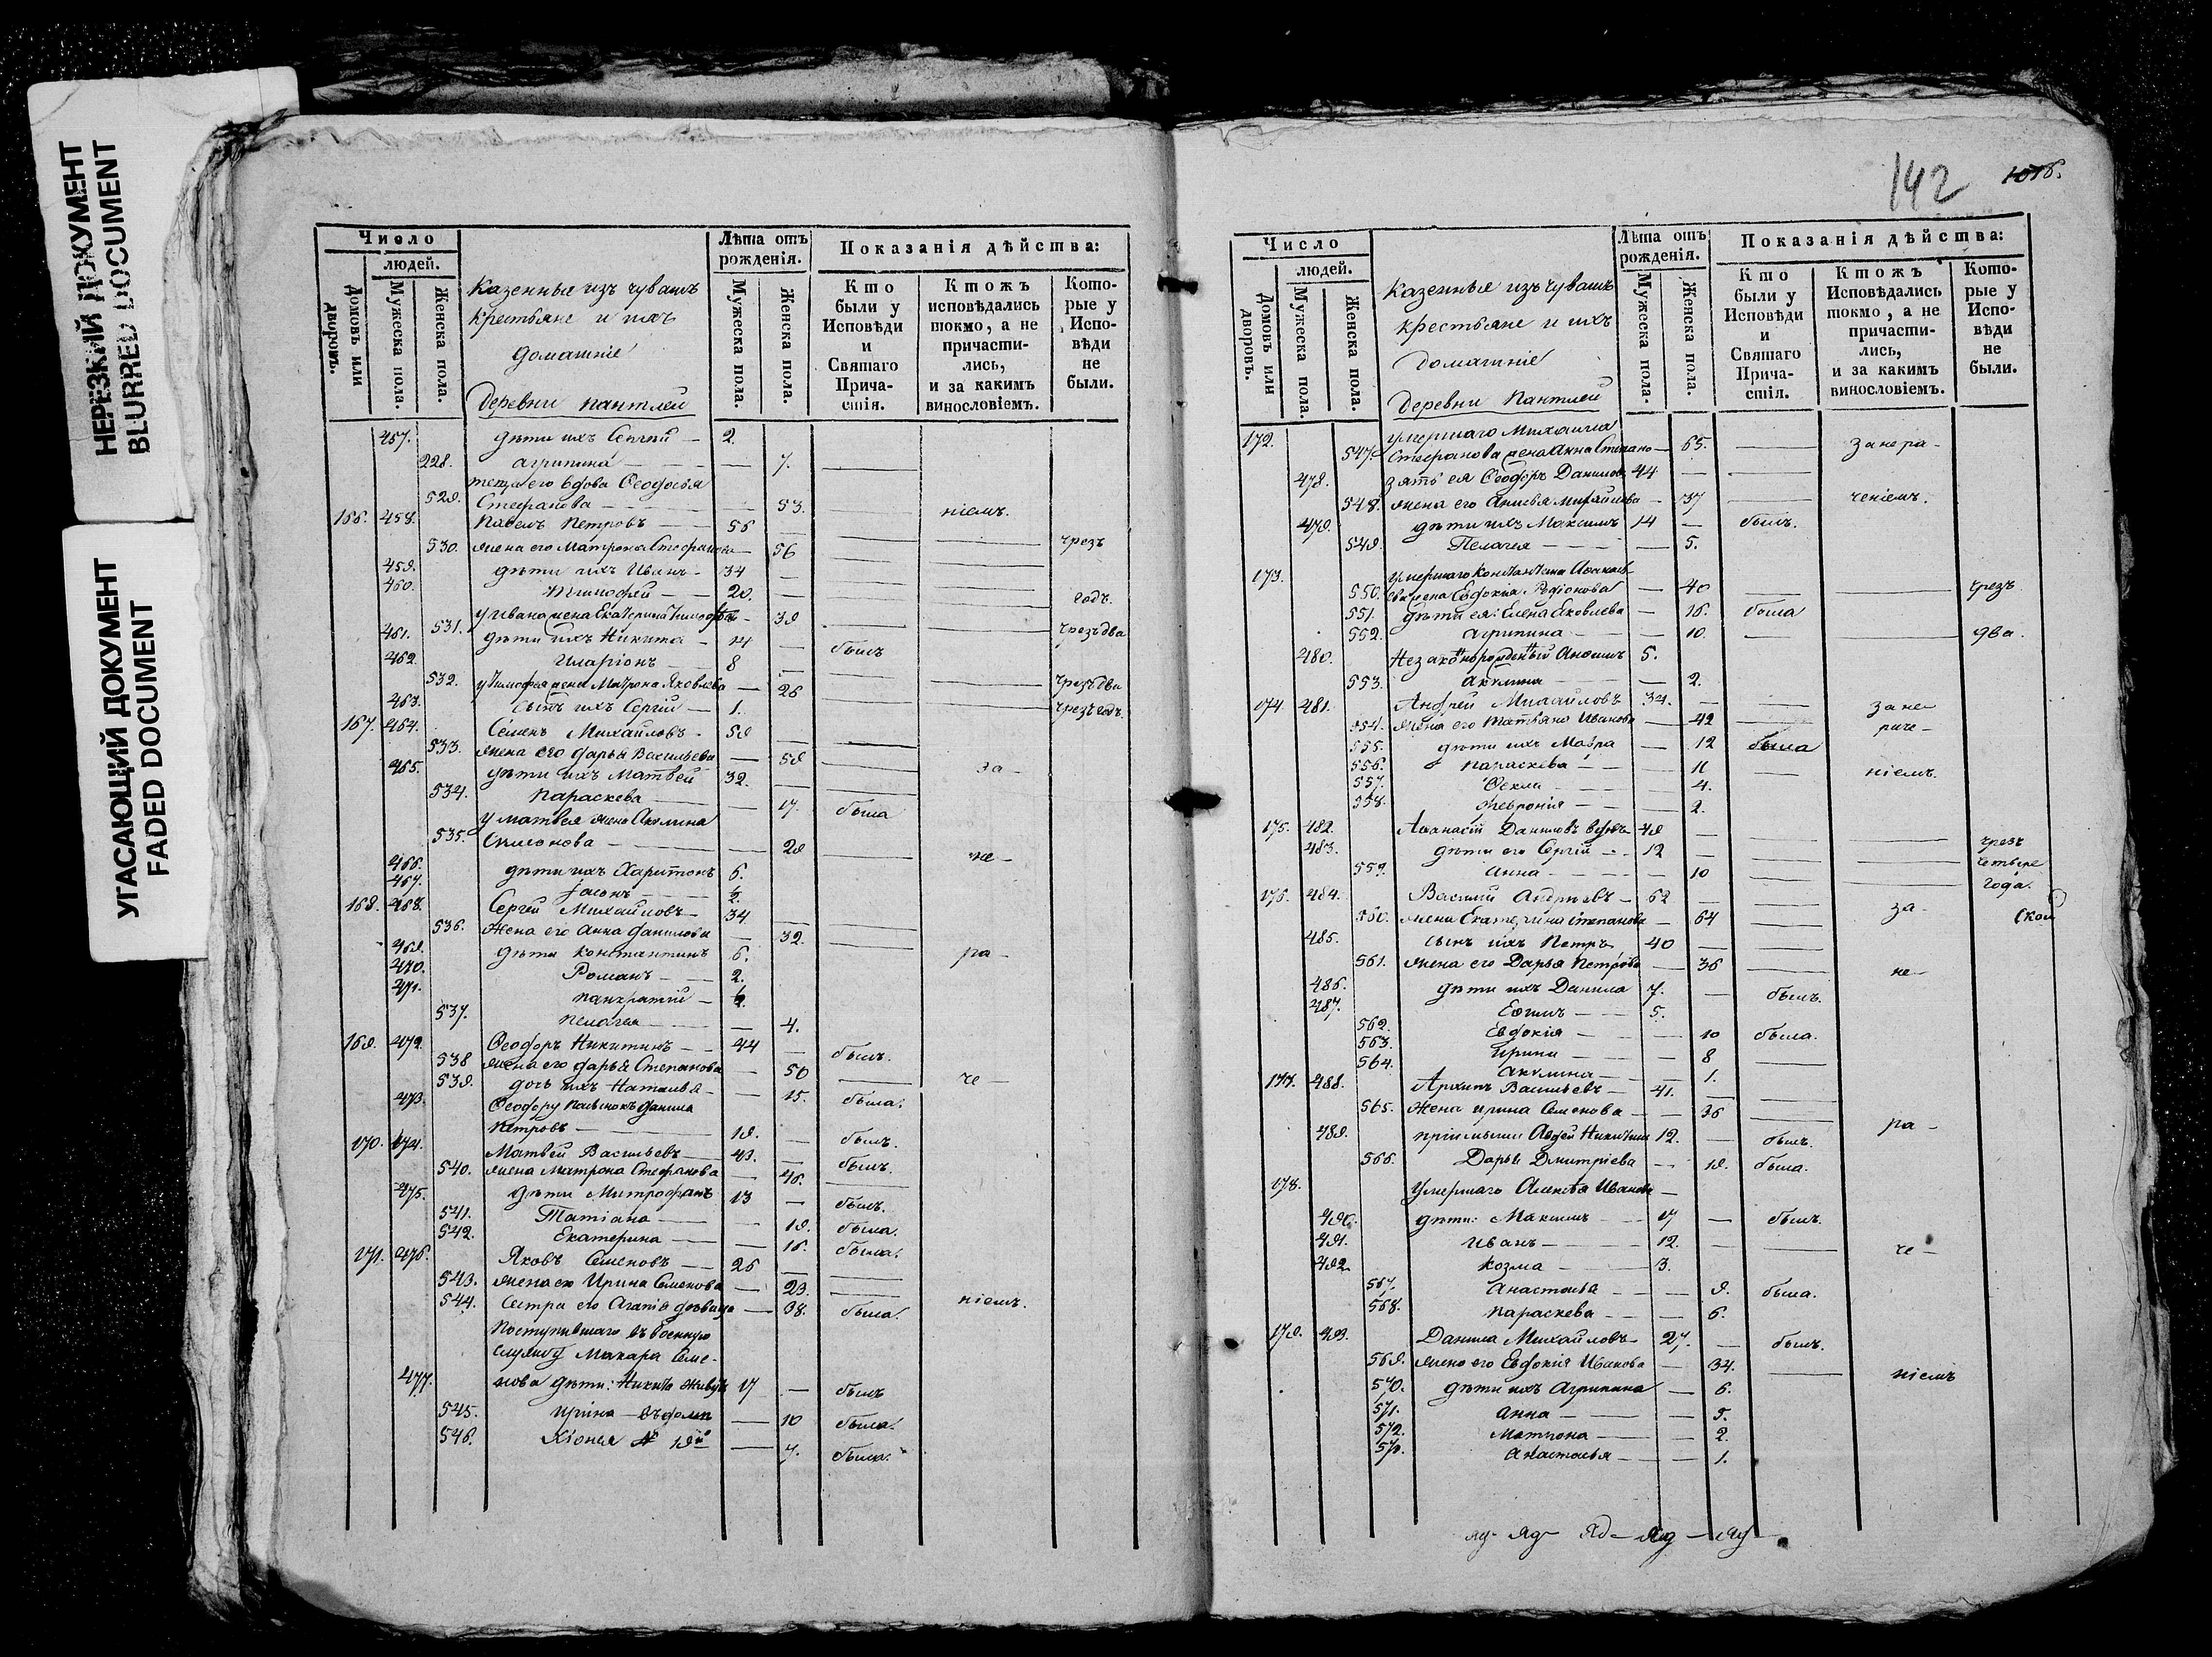 НЕРЕЗКИЙ ДОКУМЕНТ
BLURRED DOCUMENT
УГАСАЮЩИЙ ДОКУМЕНТ
FADED DOCUMENT
Число
людей.
Домовъ или дворовъ.
Мужеска пола.
Женска пола.
Казенные изъ чувашъ
крестьяне и ихъ
домашніе
деревни Пантлей
Лѣта отъ рожденія.
Мужеска пола.
Женска пола.
Показанія дѣйства:
Кто были у Исповѣди и Святаго Причастія.
Ктожъ исповѣдались токмо, а не причастились, и за какимъ винословіемъ.
Которые у Исповѣди не были.
457. дѣти ихъ Сергей — 2.
528. агрипина — 7.
теща его вдова Феодосья
529. Стефанова — 53. ніемъ.
166. 458. Павелъ Петровъ — 55 —
530. жена его Матрона Стефанова — 56 чрезъ
459. дѣти ихъ Иванъ — 34 —
460. Тимофей — 20. — годъ.
531. у Ивана жена Екатерина Тимофѣева — 39 чрезъ два
461. дѣти ихъ Никита — 14 — былъ
462. Иларіонъ — 8 —
532. у Тимофея жена Матрона Яковлева — 26 чрезъ два
463. сынъ ихъ Сергій — 1. чрезъ годъ.
167. 464. Семенъ Михайловъ — 59
533. жена его дарья Васильева — 59
465. дѣти ихъ Матвей 32. — за-
534. Параскева — 17. была
у матвея жена Акулина
535. Симонова — 29 не-
466. дѣти ихъ Харитонъ 6.
467. Іасонъ — ½.
168. 468. Сергей Михайловъ — 34 —
536. Жена его Анна данилова — 32.
469. дѣти константинъ 6. ра-
470. Романъ — 2.
471. панкратій — ½.
537. Пелагея — 4.
169. 472. Феодоръ Никитинъ — 44 — былъ.
538 жена его дарья Степанова — 50 че-
539. дочь ихъ Наталья — 15. была.
473. Феодору пасынокъ данила
Петровъ — 19. — былъ.
170. 474. Матвей Васильевъ — 43. — былъ.
540. жена Матрона Стефанова — 46.
475. дѣти Митрофанъ 13 — былъ.
541. Татіана — 19. была.
542. Екатерина — 16. была.
171. 476. Яковъ Семеновъ — 26 —
543. жена ею Ирина Семенова — 23.
544. Сестра его Агапія дѣвица — 38. была. ніемъ.
Поступившаго въ военную
службу Макара Семе-
477. нова дѣти: Никита живутъ 17 — былъ
545. Ирина — въ домѣ — 10 была.
546. Хіонья № 19й — 7. была.
142 1016.
Число
людей.
Домовъ или дворовъ.
Мужеска пола.
Женска пола.
Казенные изъ чувашъ
крестьяне и ихъ
домашніе
Деревни Пантлей
Лѣта отъ рожденія.
Мужеска пола.
Женска пола.
Показанія дѣйства:
Кто были у Исповѣди и Святаго Причастія.
Ктожъ Исповѣдались токмо, а не причастились, и за какимъ винословіемъ.
Которые у Исповѣди не были.
172. умершаго Михаила
547. Стефанова жена Анна Степано- — 65. за нера-
478. зять ея Феодоръ Данилов. 44 —
548. жена его Анисья Михайлова — 37 ченіемъ.
479. дѣти ихъ Максимъ 14 — былъ.
549. Пелагея — 5.
173. умершаго Константина
550. жена Евдокия Родіонова — 40 чрезъ
551. дѣти ея: Елена Яковлева — 16. была
552. агрипина — 10. два.
480. Незаконнорожденный 5.
553. Акулина — 2.
174. 481. Андрей Михайловъ 34. — за не-
554. жена его татьяна Иванова — 42 раче-
555. дѣти ихъ Мавра — 12 была
556. Параскева — 11 ніемъ.
557. Фекла — 4.
558. февронія — 2.
175. 482. Афанасій Даниловъ вдовъ 49 — чрезъ
483. дѣти его Сергій — 12 — четыре
559. Анна — 10 года.
176. 484. Василий Андреевъ — 62 — за-
560. жена Екатерина степанова — 64
485. сынъ ихъ Петръ 40 —
561. жена его Дарья Петрова — 36 не-
486. дѣти ихъ Данила 7. — былъ.
487. Ефимъ — 5.
562. Евдокія — 10 была.
563. Ирина — 8
564. Акулина — 1.
177. 488. Архипъ Васильевъ — 41. —
565. Жена ирина Семенова — 36 ра-
489. пріимыши Авдей Никитинъ 12. — былъ.
566. Дарья Дмитріева — 19. была.
178. Умершаго Алексѣя Иванова —
490. дѣти: Максимъ — 17 — былъ.
491. Иванъ — 12. — че-
492. Козма — 3.
567. Анастасія — 9. была.
568. Параскева — 6.
179. 493. Данила Михайловъ — 27. — былъ.
569. жена его Евдокія Иванова — 34. ніемъ
570. дѣти ихъ Агрипина — 6.
571. Анна — 5.
572. Матрона — 2.
573. Анастасья — 1.